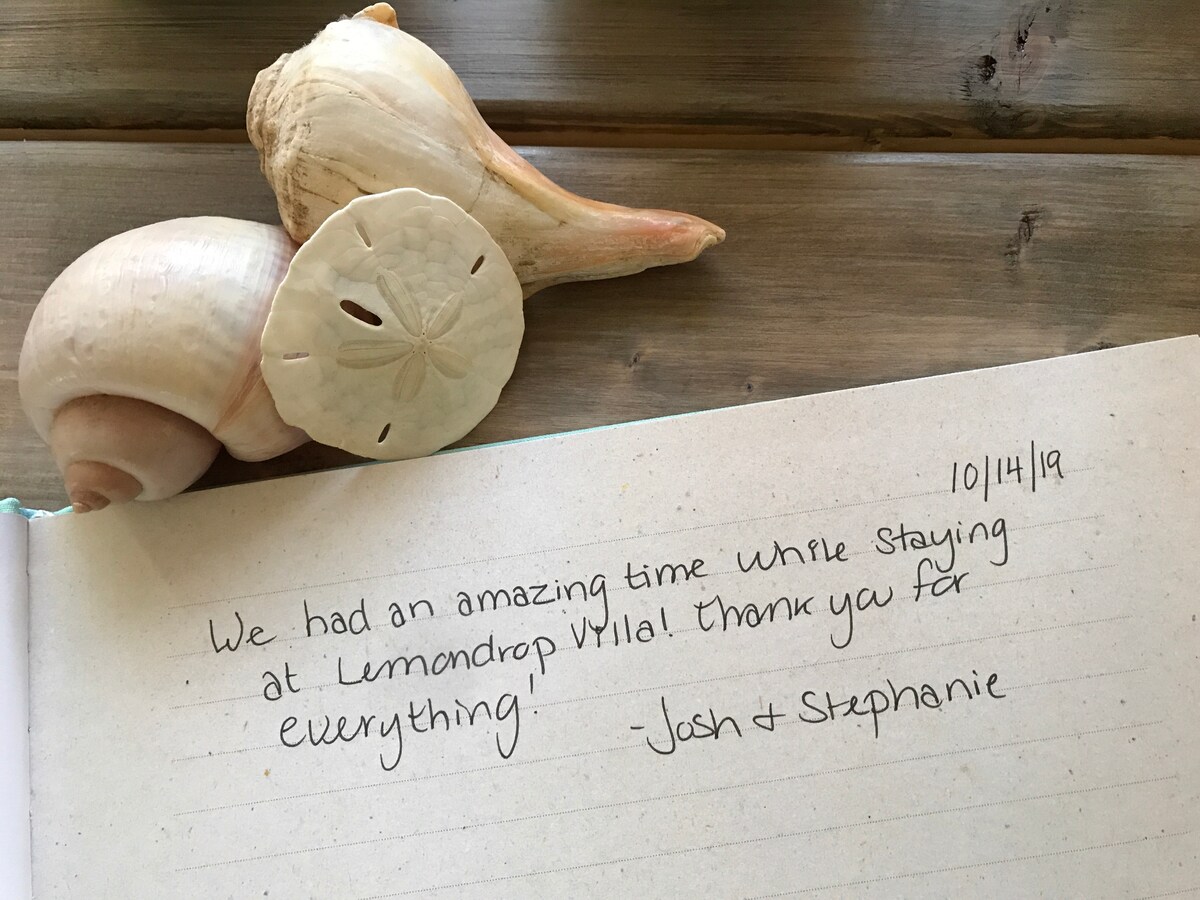 10/14/19
We had an amazing time while staying
at Lemondrop Villa! Thank you for
everything!
-Josh & Stephanie